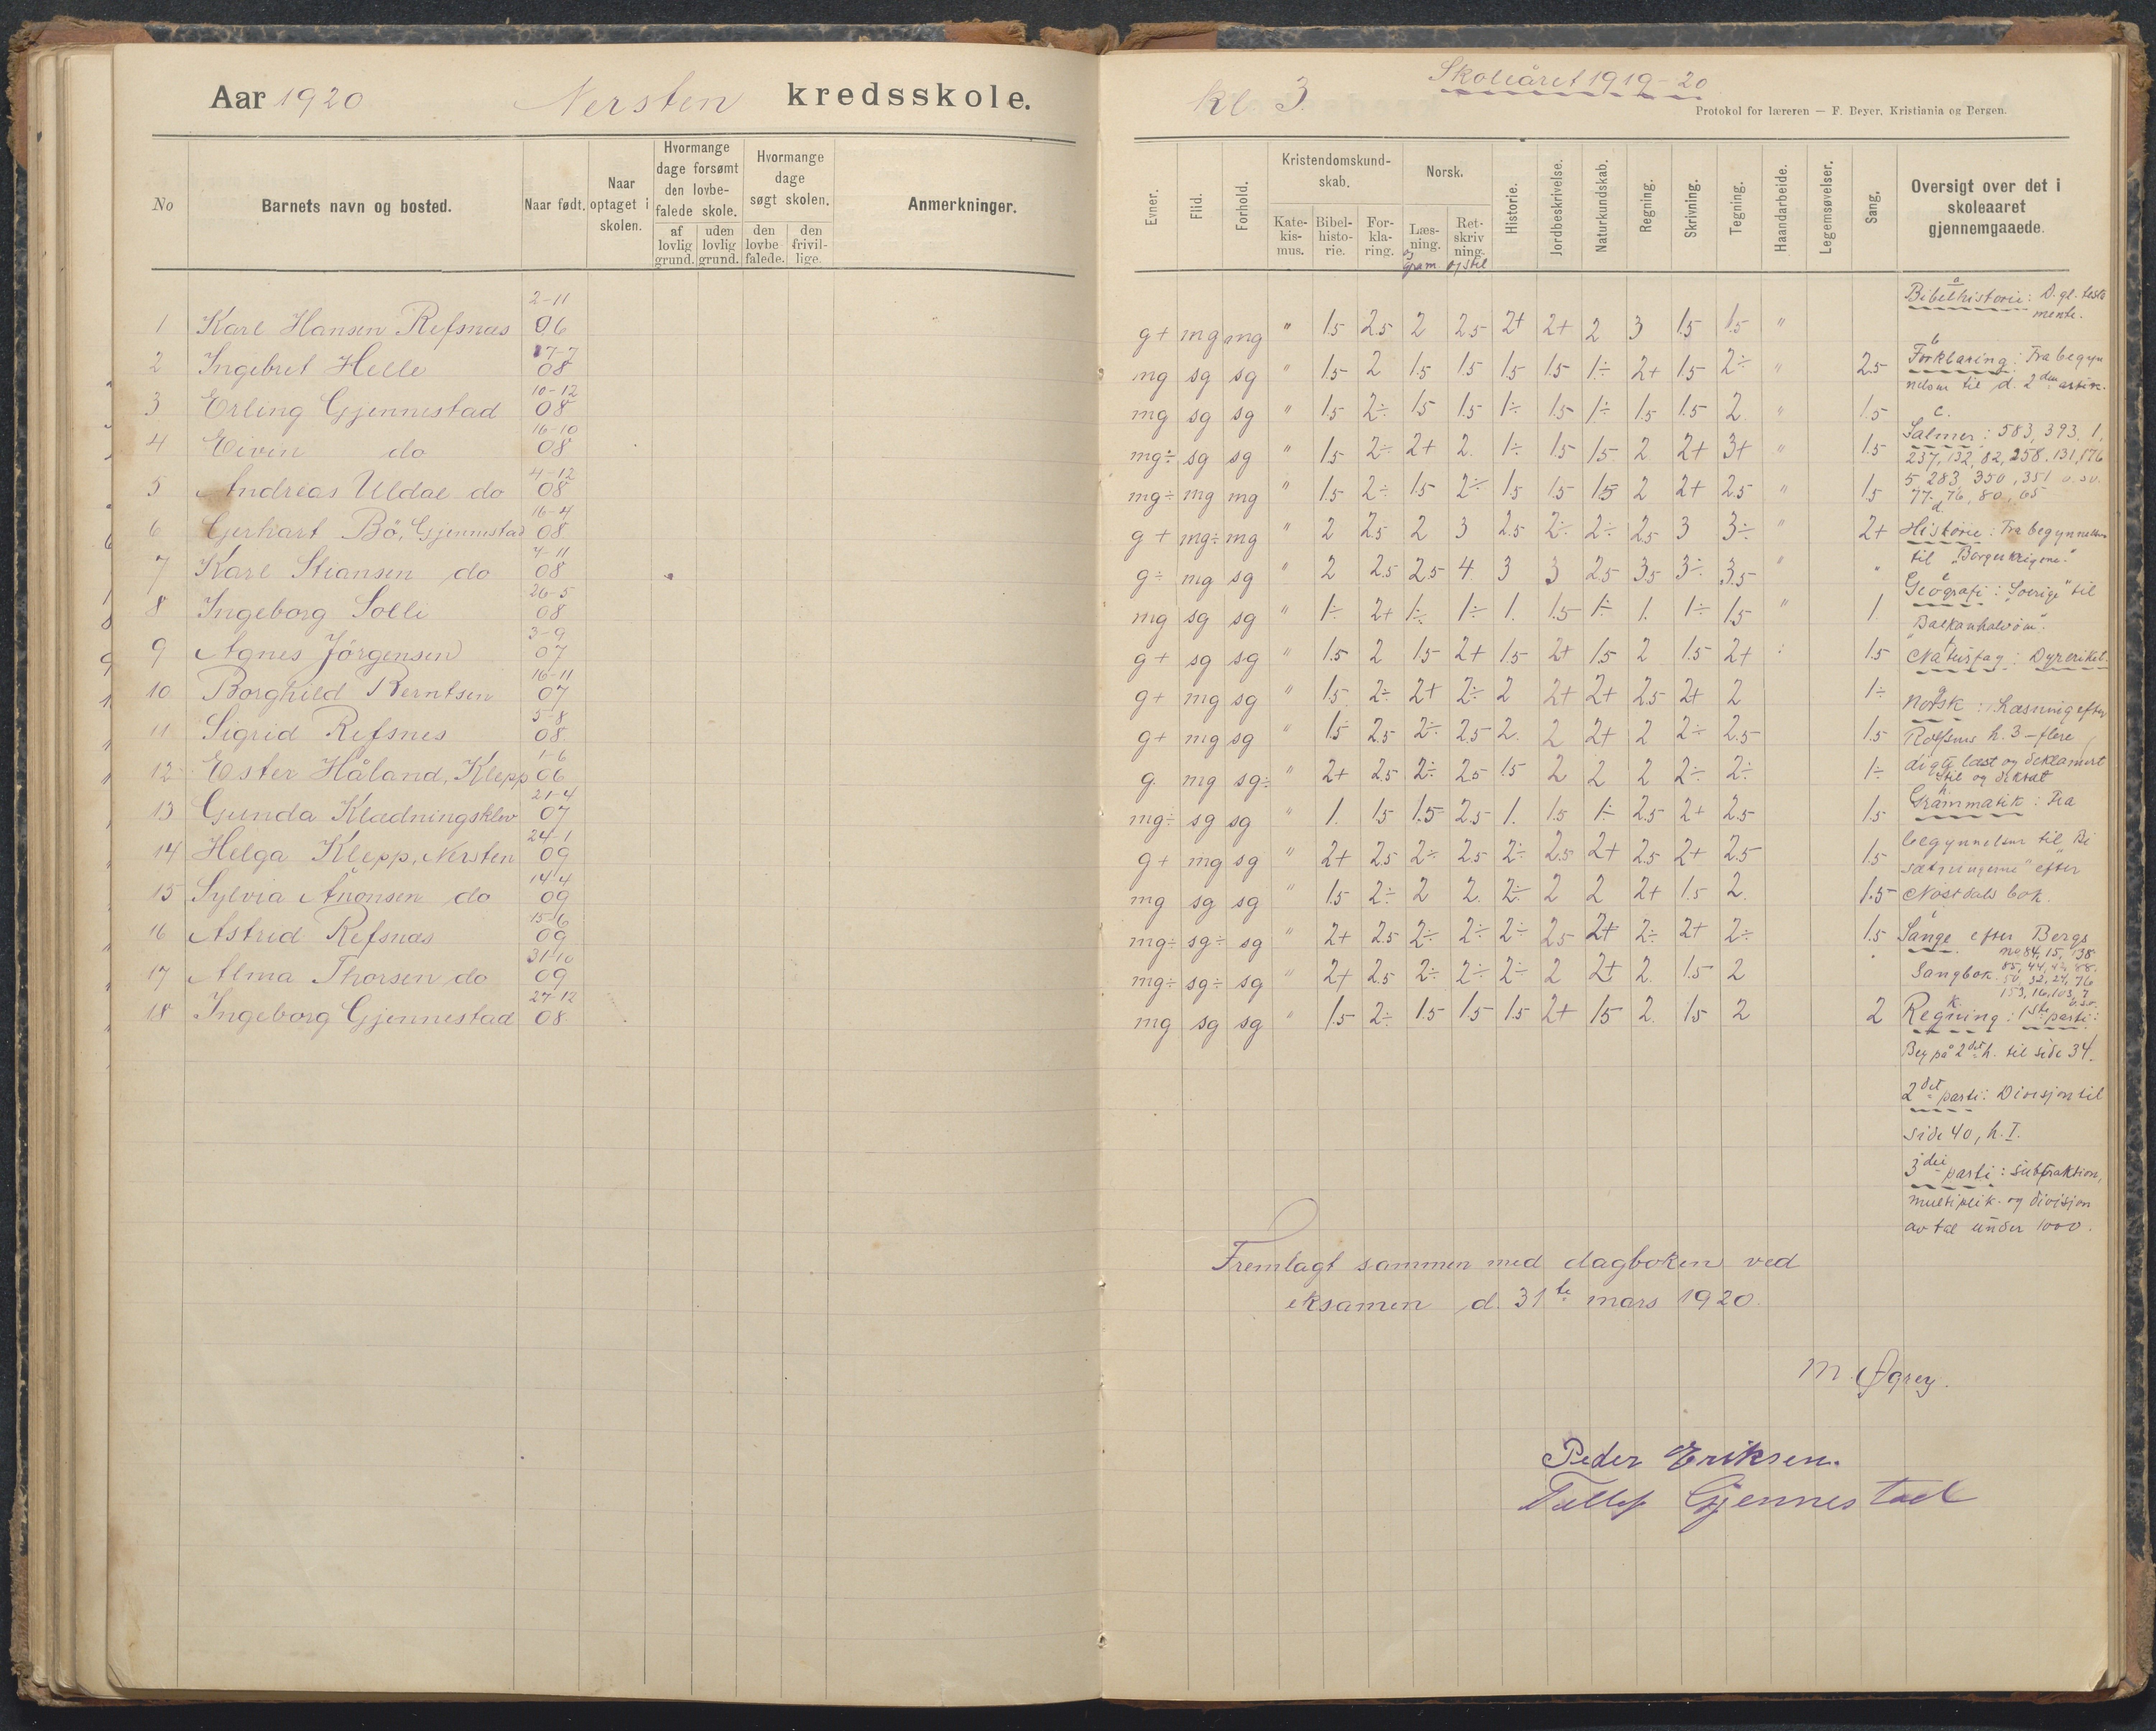 Aar 1920 Nersten kredsskole.
No Barnets navn og bosted. Naar født. Naar optaget i skolen. Hvormange dage forsømt den lovbe-falede skole. af lovlig grund. uden lovlig grund. Hvormange dage søgt skolen. den lovbe falede. den frivil-lige. Anmerkninger.
1 Karl Hansen Refsnæs 2-11 06
2 Ingebret Helle 17-7 08
3 Erling Gjennestad 10-12 08
4 Eivin do 16-10 08
5 Andreas Uldal do 4-12 08
6 Gerhart Bö, Gjennestad 16-4 08
7 Karl Stiansen do 4-11 08
8 Ingeborg Solli 26-5 08
9 Agnes Jörgensen 3-9 07
10 Borghild Berntsen 16-11 07
11 Sigrid Refsnes 5-8 08
12 Ester Håland, Klepp 1-6 06
13 Gunda Kladningsklev 21-4 07
14 Helga Klepp, Nersten 24-1 09
15 Sylvia Anonsen do 14-4 09
16 Astrid Refsnæs 15-6 09
17 Alma Thorsen do 31-10 09
18 Ingeborg Gjennestad 27-12 08
kl. 3. Skoleåret 1919-20
Protokol for læreren — F. Beyer, Kristiania og Bergen.
Evner. Flid. Forhold. Kristendomskund-skab. Kate-kis-mus. Bibel-histo-rie. For-kla-ring. Norsk. Læs-ning. og gram. Ret-skriv ning. og stil Historie. Jordbeskrivelse. Naturkundskab. Regning. Skrivning. Tegning. Haandarbeide. Legemsøvelser. Sang. Oversigt over det i skoleaaret gjennemgaaede.
g+ mg mg " 1.5 2.5 2 2.5 2+ 2+ 2 3 1.5 1.5 "
mg sg sg " 1.5 2 1.5 1.5 1.5 1.5 1÷ 2+ 1.5 2÷ " 2.5
mg sg sg " 1.5 2÷ 1.5 1.5 1÷ 1.5 1÷ 1.5 1.5 2. " 1.5
mg÷ sg sg " 1.5 2÷ 2+ 2. 1÷ 1.5 1.5 2. 2+ 3+ " 1.5
mg÷ mg mg " 1.5 2÷ 1.5 2÷ 1.5 1.5 1.5 2 2+ 2.5 " 1.5
g+ mg÷ mg " 2 2.5 2 3 2.5 2÷ 2÷ 2.5 3 3÷ " 2+
g÷ mg sg " 2 2.5 2.5 4. 3 3 2.5 3.5 3÷ 3.5 " "
mg sg sg " 1÷ 2+ 1÷ 1÷ 1. 1.5 1÷ 1. 1÷ 1.5 " 1.
g+ sg sg " 1.5 2 1.5 2+ 1.5 2+ 1.5 2 1.5 2+ 1.5
g+ mg sg " 1.5 2÷ 2+ 2÷ 2 2+ 2+ 2.5 2+ 2 1÷
g+ mg sg " 1.5 2.5 2÷ 2.5 2. 2 2+ 2 2÷ 2.5 1.5
g. mg sg÷ " 2+ 2.5 2÷ 2.5 1.5 2 2 2 2÷ 2÷ 1÷
mg÷ sg sg " 1. 1.5 1.5 2.5 1. 1.5 1÷ 2.5 2+ 2.5 1.5
g+ mg sg " 2+ 2.5 2÷ 2.5 2÷ 2.5 2+ 2.5 2+ 2.5 1.5
mg sg sg " 1.5 2÷ 2 2. 2÷ 2 2 2+ 1.5 2. 1.5
mg÷ sg÷ sg " 2+ 2.5 2÷ 2÷ 2÷ 2.5 2+ 2÷ 2+ 2÷ 1.5
mg÷ sg÷ sg " 2+ 2.5 2÷ 2÷ 2÷ 2 2+ 2. 1.5 2
mg sg sg " 1.5 2÷ 1.5 1.5 1.5 2+ 1.5 2. 1.5 2 2
a
Bibelhistorie: D. gl. testa
mente.
b
Forklaring: Fra begyn
nelsen til d. 2den artik.
c.
Salmer: 583, 393, 1,
237, 132, 82, 258. 131, 176
5, 283, 350, 351 o.sv.
77, 76, 80, 65
d
Historie: Fra begynnelsen
til "Borgerkrigene."
e
Geografi: "Sverige" til
"Balkanhalvöin".
f
Naturfag: Dyreriket.
g
Norsk: Læsning efter
Rolfsens h. 3 - flere
digte læst og deklamert
Stil og diktat
h.
Grammatik: Fra
begynnelsen til "Bi
sætningerne" efter
Nostdals bok.
i
Sange efter Bergs
no 84, 15, 138
Sangbok. 85, 44, 42, 88.
50, 32, 24, 76
153, 16, 103, 7
o.s.v.
k.
Regning: 1ste parti:
Beg på 2det h. til side 34.
2det parti: Divisjon til
side 40, h. I.
3die parti: subtraktion,
multiplik. og divisjon
av tal under 1000.
Fremlagt sammen med dagboken ved
eksamen d. 31te mars 1920.
M. Øgrey.
Peder Eriksen.
Tellef Gjennestad